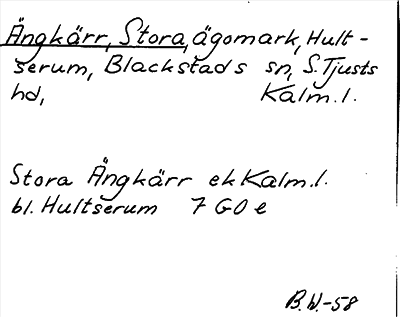 Ängkärr, Stora, ägomark, Hult-
serum, Blackstads sn, S. Tjusts
hd, Kalm. l.
Stora Ängkärr ek Kalm. l.
bl. Hultserum 7 GO e
B.W.-58